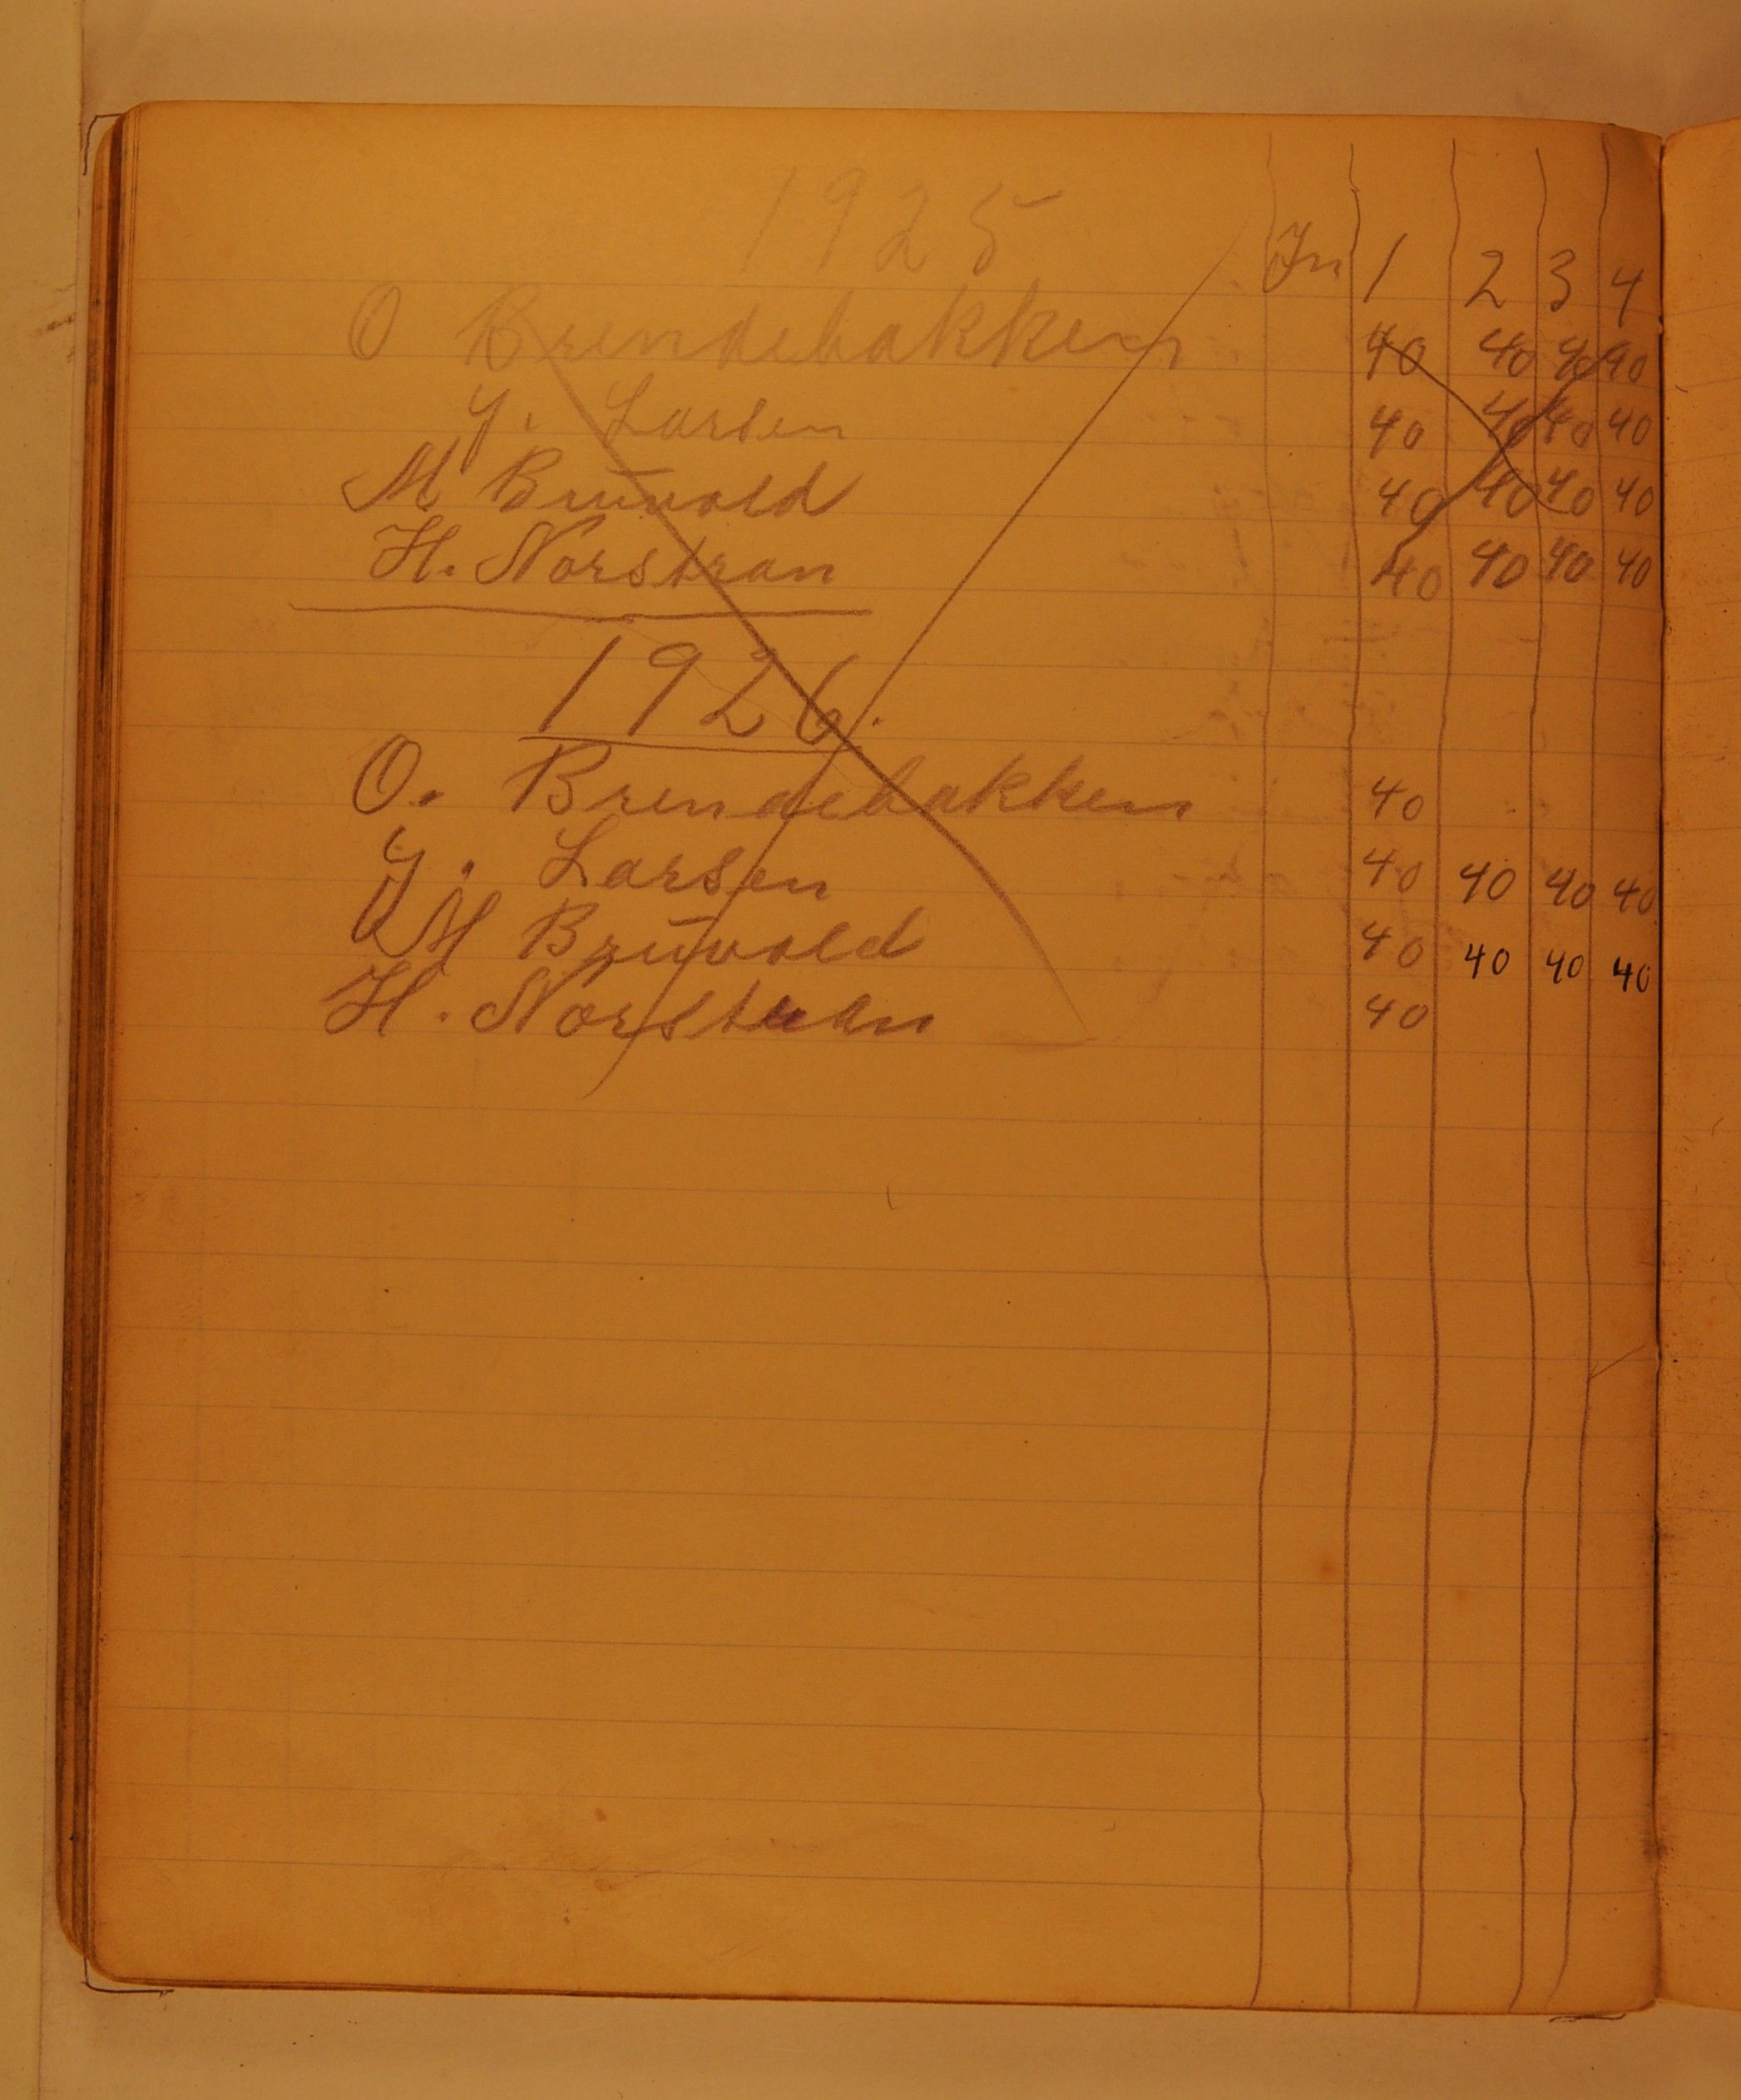 1925
In 1 2 3 4
O Brendebakken 40 40 40 40
G. Larsen 40 40 40 40
M Bruvold 40 40 40 40
H. Norstran 40 40 40 40
1926.
O. Brendebakken 40
G. Larsen 40 40 40 40
M Bruvold 40 40 40 40
H. Norstran 40